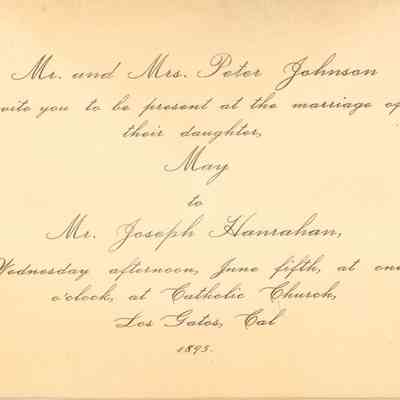 Mr. and Mrs. Peter Johnson
vite you to be present at the marriage of
their daughter,
May
to
Mr. Joseph Hanrahan,
Wednesday afternoon, June fifth, at one
o'clock, at Catholic Church,
Los Gatos, Cal
1895.